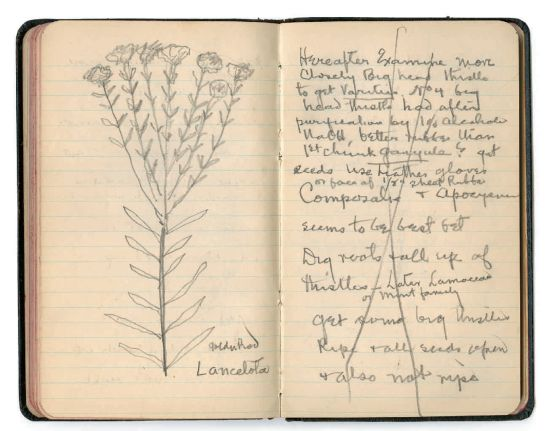 Goldenrod
Lancelota
Hereafter Examine more
Closely Big head thistle
to get Varities. No 4 big
head thistle had after
purification by 10% alcoholic
NaOH better rubber than
1st chunk guayule & get
seeds use leather gloves
or face of 1/32 sheet Rubber
Compositae & Apocynum
seems to be best bet
Dig roots & all up of
thistles – Later Lamaceae
or mint family
get some big thistles
Ripe & all seeds open
& also not ripe